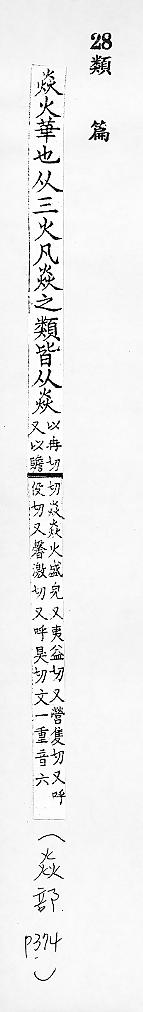 28類篇
焱火華也从三火凡焱之類皆从焱
以冉切
又以贍
切焱焱火盛皃又夷益切又營隻切又呼
役切又馨激切又呼臭切文一重音六
(焱部 P374)